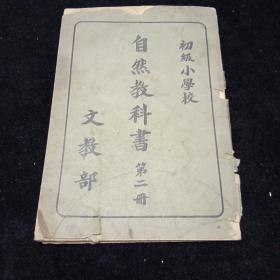 初級小學校
自然教科書 第二冊
文教部